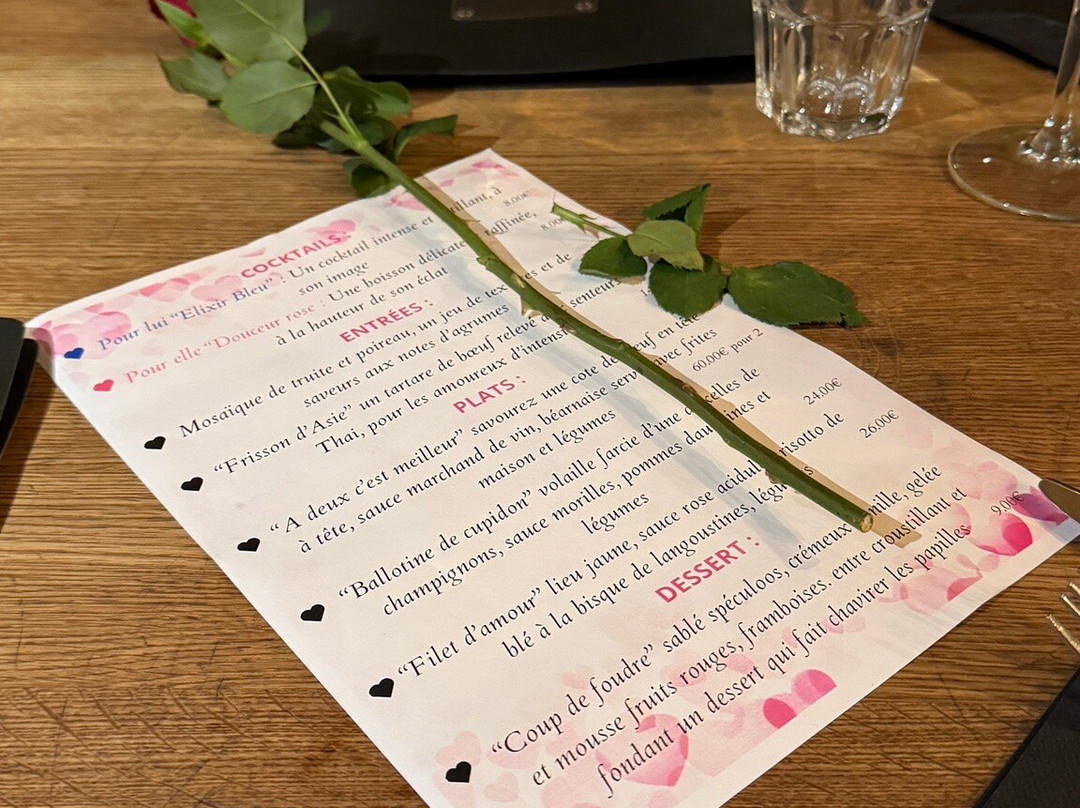 COCKTAILS:
Pour lui “Elixir Bleu” : Un cocktail intense et à
son image 8.00€
Pour elle “Douceur rose : Une boisson délicate raffinée,
à la hauteur de son éclat
ENTRÉES :
Mosaïque de truite et poireau, un jeu de et de
saveurs aux notes d’agrumes
“Frisson d’Asie” un tartare de bœuf relevé senteurs
Thai, pour les amoureux d’intense
PLATS :
“A deux c’est meilleur” savourez une cote de en tête
à tête, sauce marchand de vin, béarnaise avec frites
maison et légumes 60.00€ pour 2
“Ballotine de cupidon” volaille farcie d’une de
champignons, sauce morilles, pommes et
légumes 24.00€
“Filet d’amour” lieu jaune, sauce rose risotto de
blé à la bisque de langoustines, 26.00€
DESSERT :
“Coup de foudre” sablé spéculoos, crémeux gelée
et mousse fruits rouges, framboises. entre croustillant et
fondant un dessert qui fait chavirer les papilles 9.00€